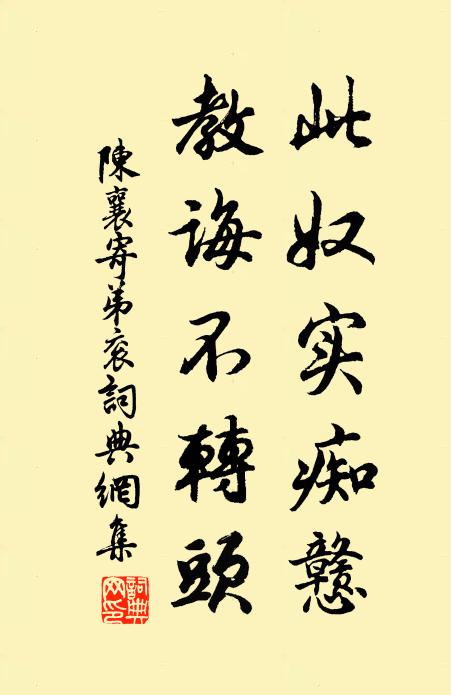 此奴实痴戆
教诲不轉頭
陳襄寄弟衮詞典網集
詞典網印